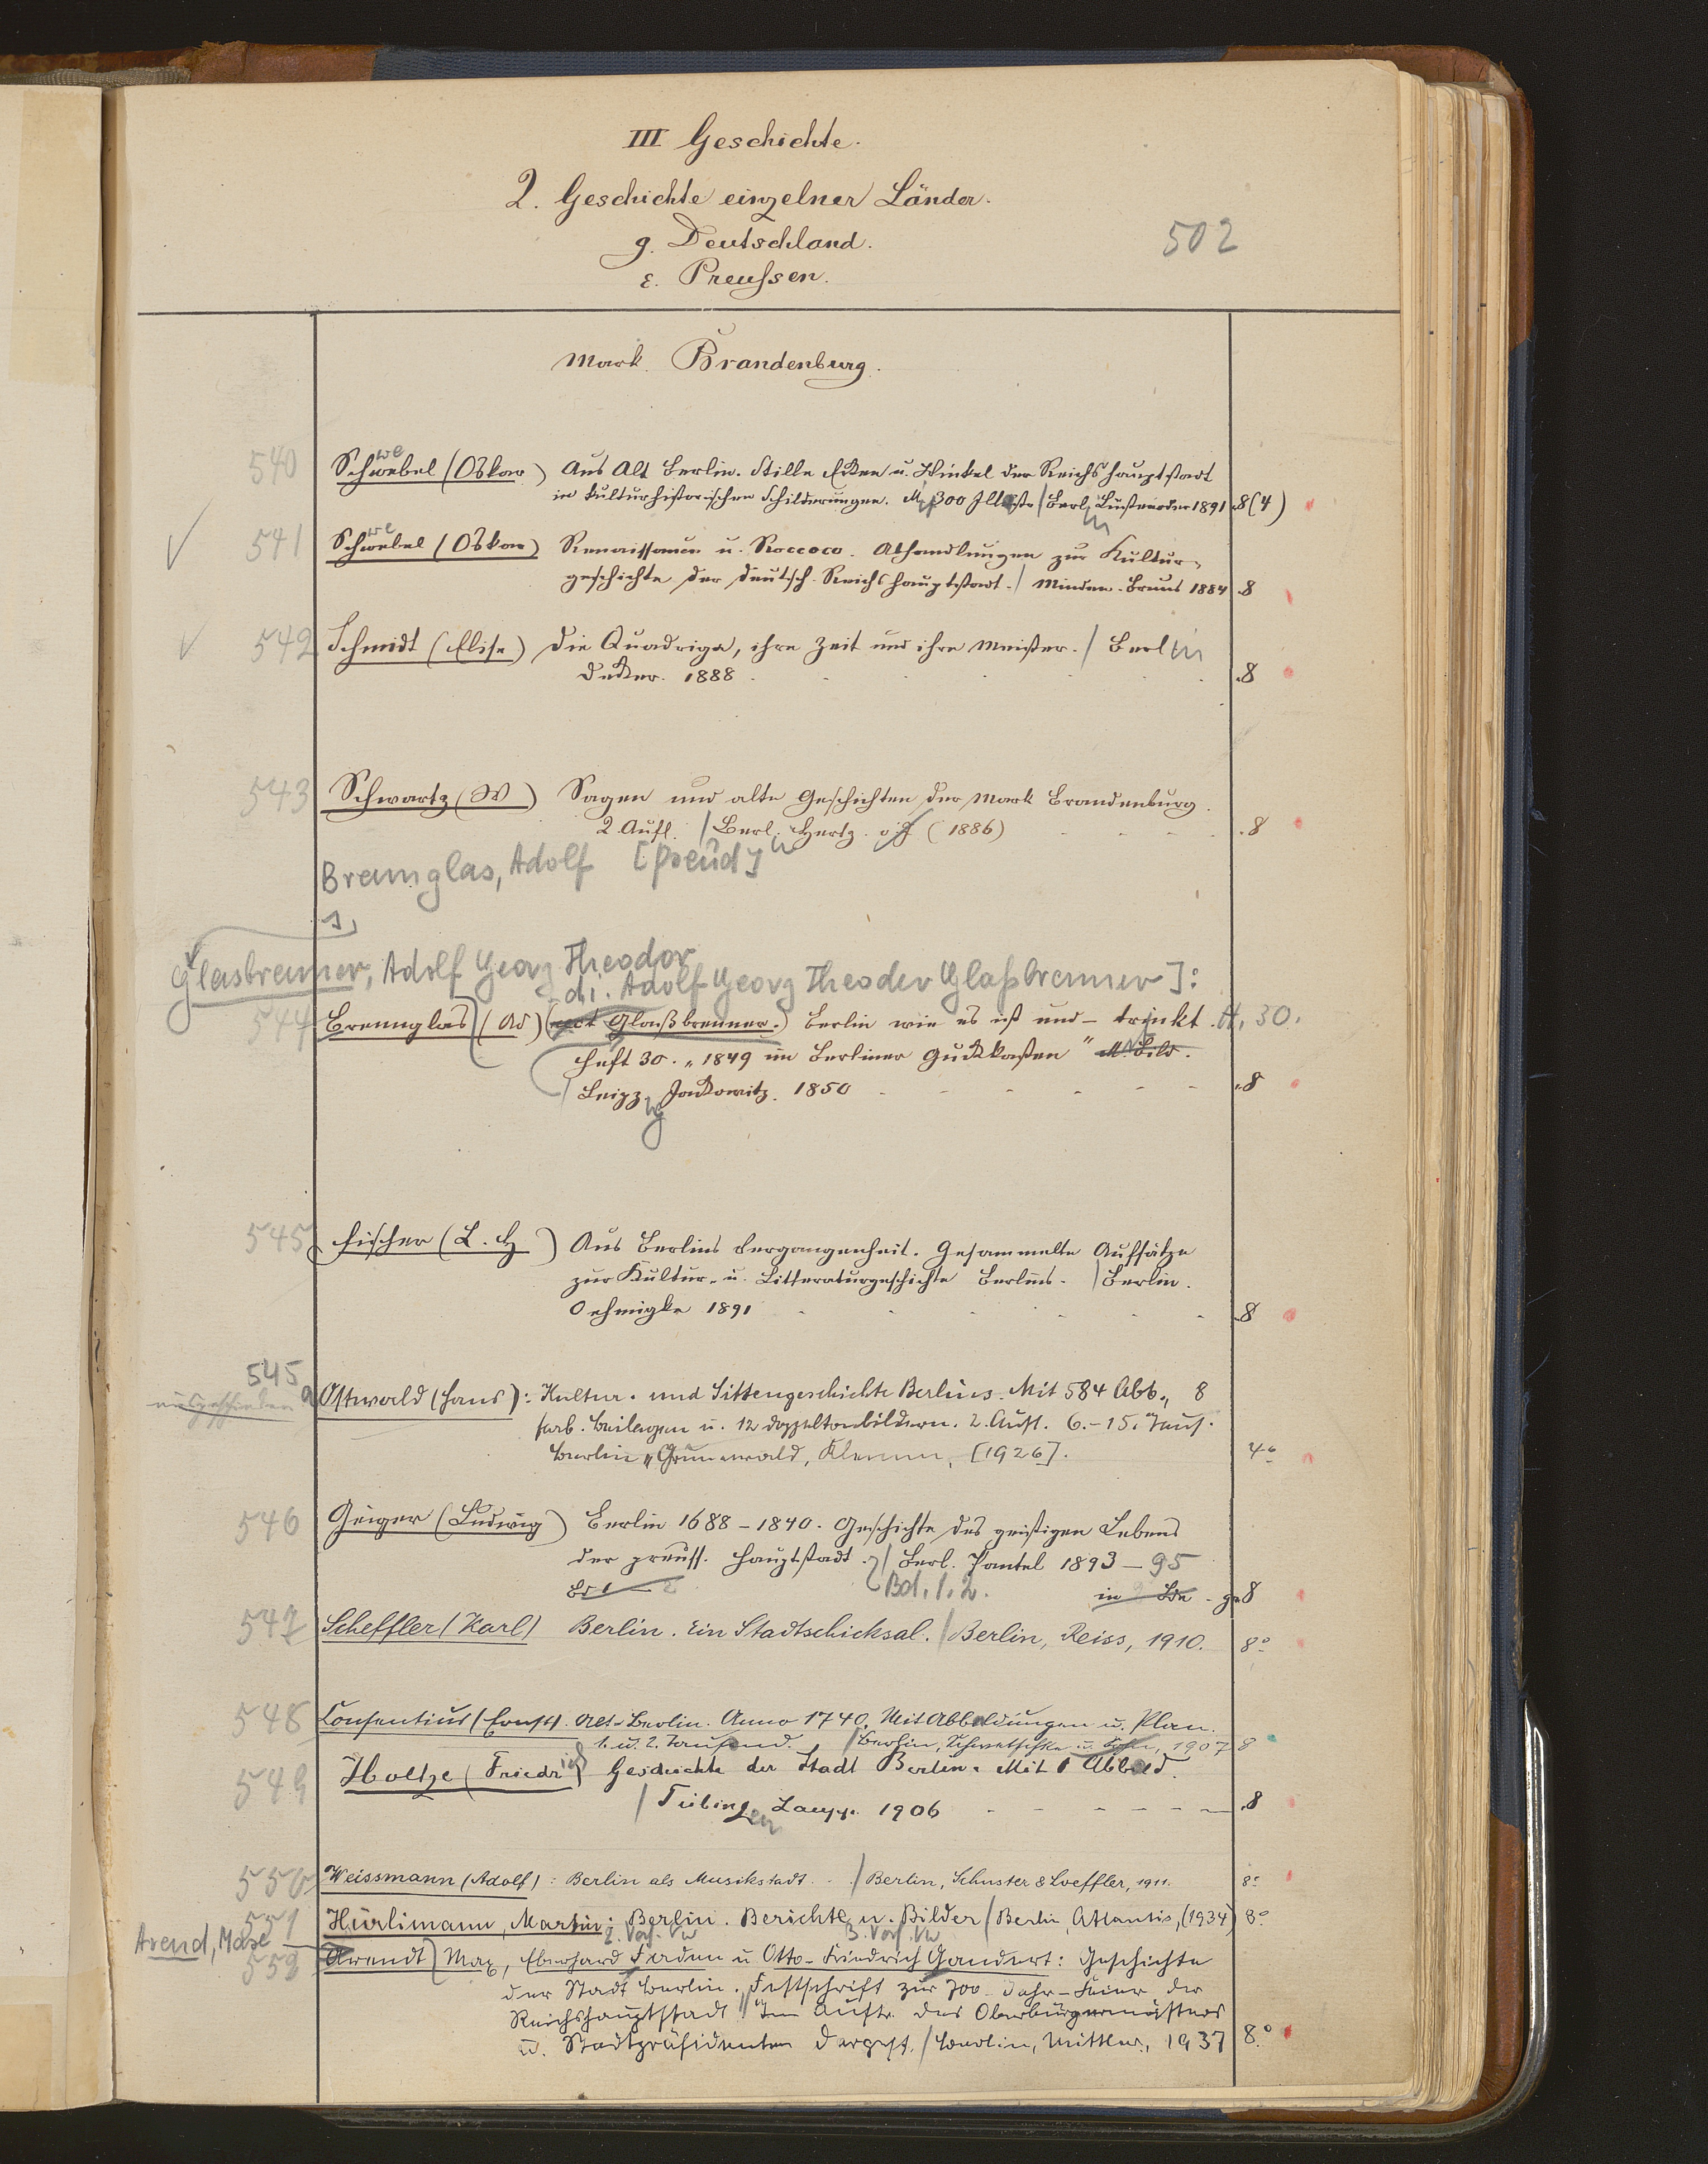 III Geschichte.
2. Geschichte einzelner Länder.
g. Deutschland.
502
ε. Preußen.
Mark Brandenburg.
540 Schwebel (Oskar) Aus Alt Berlin. Stille Ecken u. Winkel der Reichshauptstadt
in kulturhistorischen Schilderungen. M. 300 Berlin 1891 8 (4)
541 Schwebel (Oskar) Renaissance u. Roccoco. Abhandlungen zur Kultur-
geschichte der deutsch. Reichshauptstadt. / Minden. Bruns 1884 8
542 Schmidt (Elise) Die Quadriga, ihre Zeit und ihre Meister. / Berlin
Decker. 1888 8
543 Schwartz (W) Sagen und alte Geschichten der Mark Brandenburg.
2. Aufl. / Berl. Hertz. (1886) 8
Brennglas, Adolf [pseud]
s.
Glasbrenner, Adolf Georg Theodor
d.i. Adolf Georg Theodor Glaßbrenner]:
544 Brennglas (Ad) (Glaßbrenner.) Berlin wie es ist und – trinkt. H. 30.
Heft 30. „1849 im Berliner Guckkasten" M. Bild.
/ Leipzig Jackowitz. 1850 8
545 Fischer (L. H) Aus Berlins Vergangenheit. Gesammelte Aufsätze
zur Kultur- u. Litteraturgeschichte Berlins. / Berlin.
Oehmigke 1891 8
545
ausgeschieden a Ostwald (Hans): Kultur- und Sittengeschichte Berlins. Mit 584 Abb., 8
farb. Beilagen u. 12 Doppeltonbildern. 2. Aufl. 6.-15. Taus.
Berlin-Grunewald, Klemm, [1926]. 4°
546 Geiger (Ludwig) Berlin 1688-1840. Geschichte des geistigen Lebens
der preuss. Hauptstadt. / Berl. Paetel 1893-95
Bd 1-2 Bd. 1. 2. in 8
547 Scheffler (Karl) Berlin. Ein Stadtschicksal. / Berlin, Reiss, 1910. 8°
548 Consentius (Ernst). Alt-Berlin. Anno 1740. Mit Abbildungen u. Plan.
1. u. 2. Tausend. / Berlin, Schwetschke u. Sohn, 1907 8
549 Holtze (Friedrich) Geschichte der Stadt Berlin. Mit 1 Abbild.
/ Tübingen Laupp. 1906 8
550 Weissmann (Adolf): Berlin als Musikstadt. / Berlin, Schuster & Loeffler, 1911. 8°
551 Hürlimann, Martin: Berlin. Berichte u. Bilder / Berlin, Atlantis, (1934) 8°
Arend, Max 2. Verf. Vw 3. Verf. Vw
552 Arendt Max, Eberhard Faden u Otto-Friedrich Gandert: Geschichte
der Stadt Berlin. Festschrift zur 700-Jahr-Feier der
Reichshauptstadt Im Auftr. des Oberbürgermeisters
u. Stadtpräsidenten dargest. / Berlin, Mittler, 1937 8°